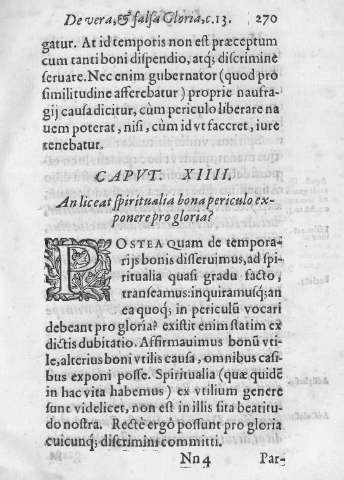 De vera, & falsa Gloria, c. 13. 270
gatur. At id temporis non est præceptum
cum tanti boni dispendio, atq; discrimine
seruare. Nec enim gubernator (quod pro
similitudine afferebatur) proprie naufra-
gij causa dicitur, cùm periculo liberare na
uem poterat, nisi, cùm id vt faceret, iure
tenebatur.
CAPVT. XIIII.
An liceat spiritualia bona periculo ex-
ponere pro gloria?
POSTEA quam de tempora-
rijs bonis disseruimus, ad spi-
ritualia quasi gradu facto,
transeamus: inquiramusq; an
ea quoq; in periculū vocari
debeant pro gloria? existit enim statim ex
dictis dubitatio. Affirmauimus bonū vti-
le, alterius boni vtilis causa, omnibus casi-
bus exponi posse. Spiritualia (quæ quidē
in hac vita habemus) ex vtilium genere
sunt videlicet, non est in illis sita beatitu-
do nostra. Rectè ergò possunt pro gloria
cuicunq; discrimini committi.
Nn 4 Par-